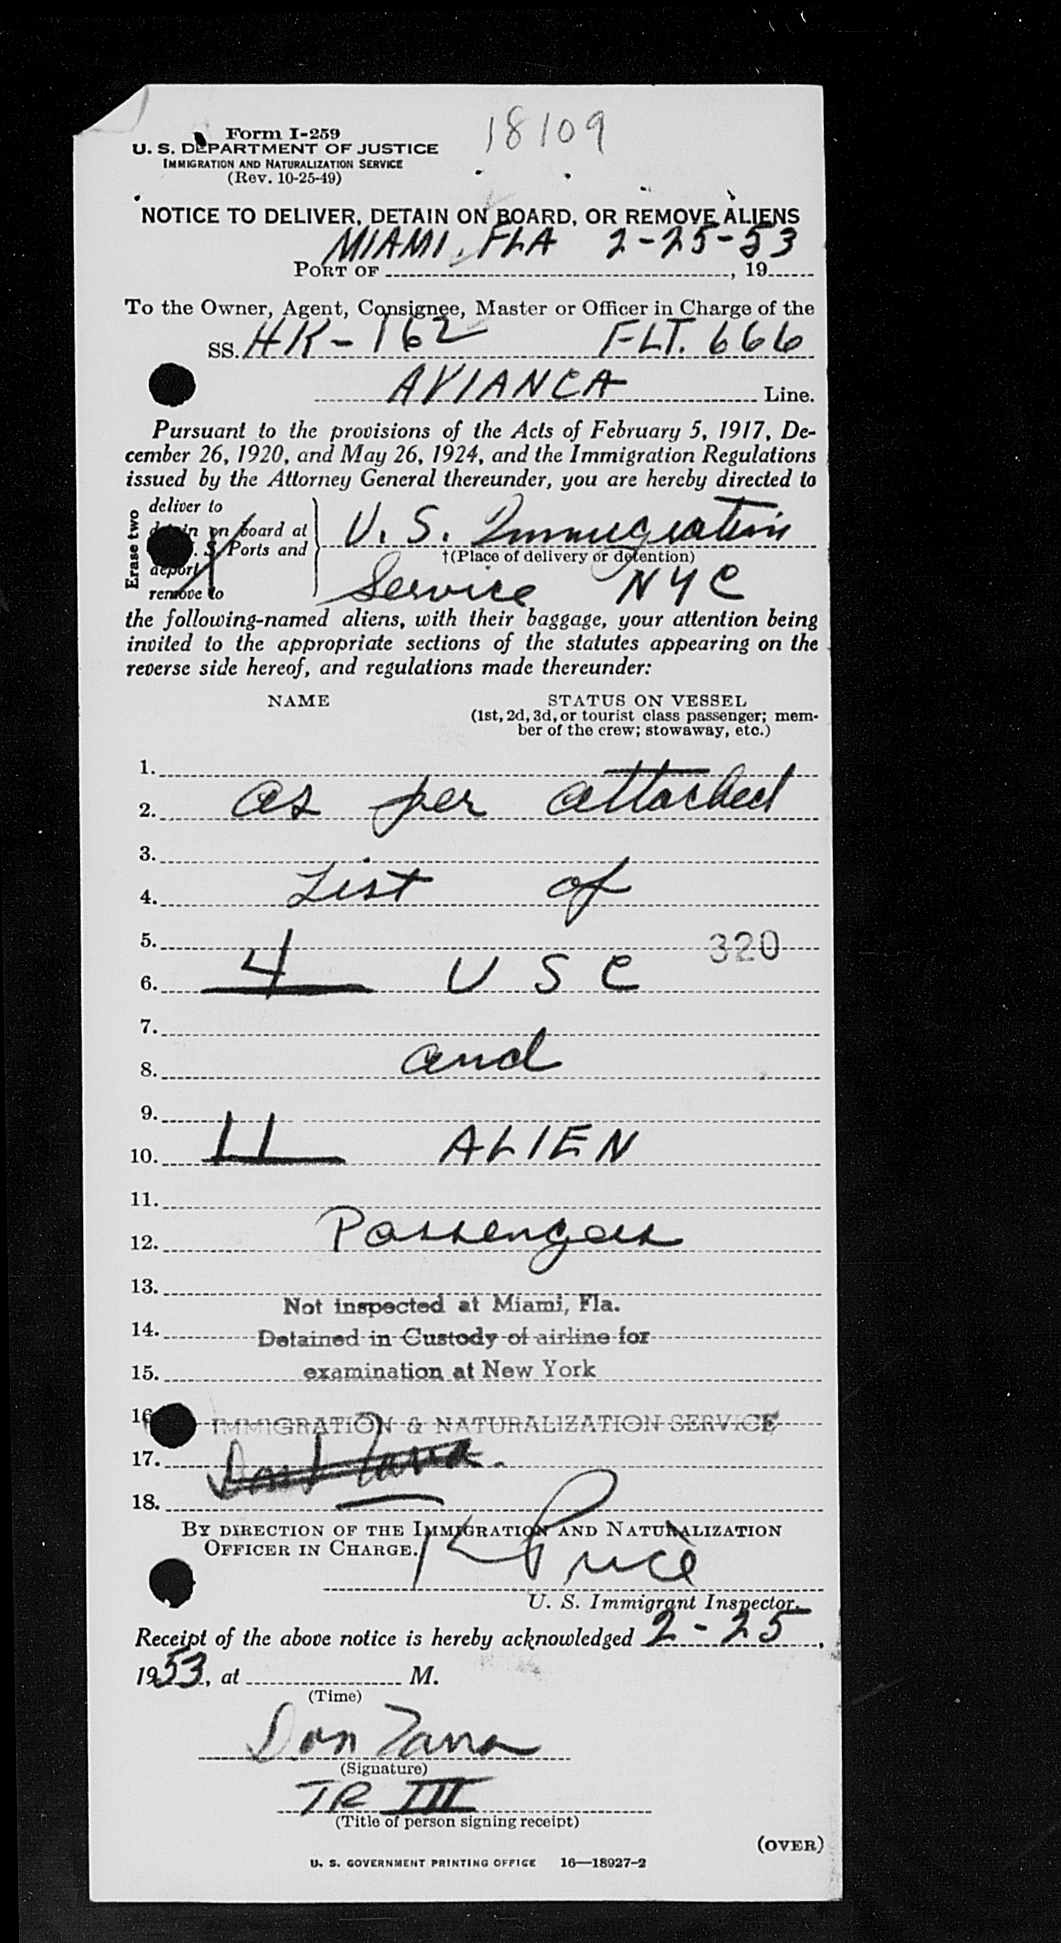 18109
Form I-259
U. S. DEPARTMENT OF JUSTICE
IMMIGRATION AND NATURALIZATION SERVICE
(Rev. 10-25-49)
NOTICE TO DELIVER, DETAIN ON BOARD, OR REMOVE ALIENS
MIAMI, FLA 2-25-53
PORT OF , 19
To the Owner, Agent, Consignee, Master or Officer in Charge of the
SS. HK-162 FLT. 666
AVIANCA Line.
Pursuant to the provisions of the Acts of February 5, 1917, De-
cember 26, 1920, and May 26, 1924, and the Immigration Regulations
issued by the Attorney General thereunder, you are hereby directed to
Erase two
deliver to
detain on board at
S. Ports and
deport
remove to
U. S. Immigration
†(Place of delivery or detention)
Service NYC
the following-named aliens, with their baggage, your attention being
invited to the appropriate sections of the statutes appearing on the
reverse side hereof, and regulations made thereunder:
NAME STATUS ON VESSEL
(1st, 2d, 3d, or tourist class passenger; mem-
ber of the crew; stowaway, etc.)
1.
2. as per attached
3.
4. List of
5. 320
6. 4 USC
7.
8. and
9.
10. 11 ALIEN
11.
12. Passengers
13.
Not inspected at Miami, Fla.
14. Detained in Custody of airline for
15. examination at New York
16. IMMIGRATION & NATURALIZATION SERVICE
17.
18.
BY DIRECTION OF THE IMMIGRATION AND NATURALIZATION
OFFICER IN CHARGE.
Price
U. S. Immigrant Inspector.
Receipt of the above notice is hereby acknowledged 2-25,
1953, at M.
(Time)
Don
(Signature)
TR III
(Title of person signing receipt)
(OVER)
U. S. GOVERNMENT PRINTING OFFICE 16—18927-2